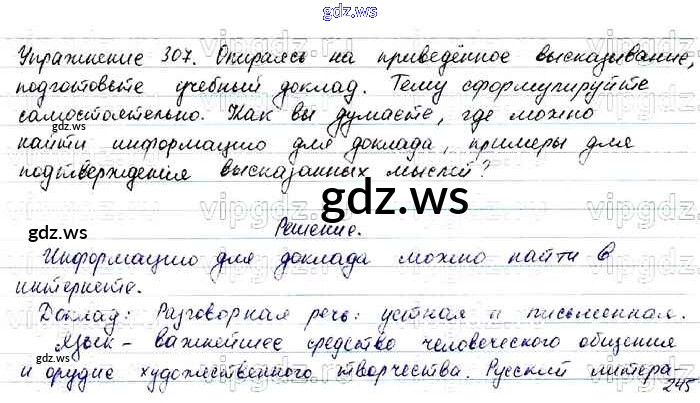 gdz.ws
Упражнение 307. Опираясь на приведённое высказывание,
подготовьте учебный доклад. Тему сформулируйте
самостоятельно. Как вы думаете, где можно
gdz.ws
найти информацию для доклада, примеры для
подтверждения высказанных мыслей?
gdz.ws
gdz.ws
Решение.
Информацию для доклада можно найти в
интернете.
Доклад: Разговорная речь: устная и письменная.
Язык - важнейшее средство человеческого общения
gdz.ws
и орудие художественного творчества. Русский литера-
245